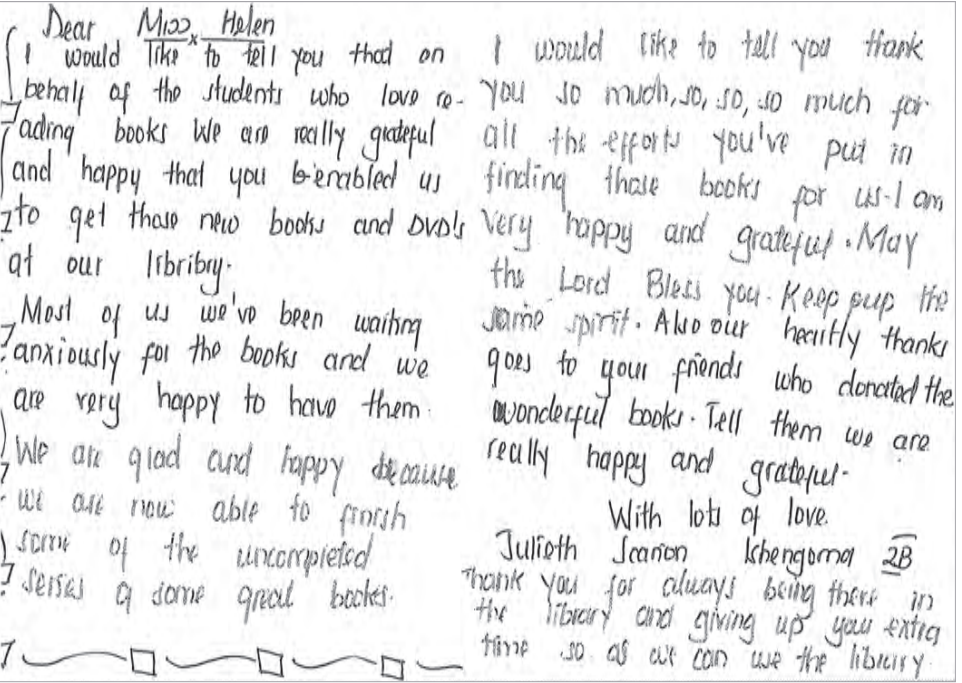 Dear Miss Helen
I would like to tell you that on
behalf of the students who love re-
ading books We are really grateful
and happy that you enabled us
to get those new books and DVD's
at our libribry.
Most of us we've been waiting
anxiously for the books and we
are very happy to have them.
We are glad and happy because
we are now able to finish
some of the uncompleted
serises of some great books.
I would like to tell you thank
you so much, so, so, so much for
all the efforts you've put in
finding those books for us. I am
very happy and grateful. May
the Lord Bless you. Keep up the
same spirit. Also our heartly thanks
goes to your friends who donated the
wonderful books. Tell them we are
really happy and grateful.
With lots of love.
Julieth Scarion Ishengoma 2B
Thank you for always being there in
the library and giving up your extra
time so as we can use the library.